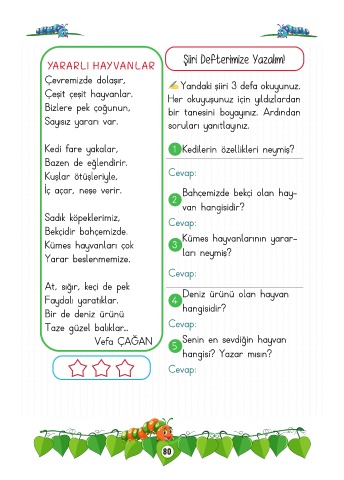 YARARLI HAYVANLAR
Çevremizde dolaşır,
Çeşit çeşit hayvanlar.
Bizlere pek çoğunun,
Saysız yararı var.
Kedi fare yakalar,
Bazen de eğlendirir.
Kuşlar ötüşleriyle,
İç açar, neşe verir.
Sadık köpeklerimiz,
Bekçidir bahçemizde.
Kümes hayvanları çok
Yarar beslenmemize.
At, sığır, keçi de pek
Faydalı yaratıklar.
Bir de deniz ürünü
Taze güzel balıklar...
Vefa ÇAĞAN
Şiiri Defterimize Yazalım!
Yandaki şiiri 3 defa okuyunuz.
Her okuyuşunuz için yıldızlardan
bir tanesini boyayınız. Ardından
soruları yanıtlayınız.
1 Kedilerin özellikleri neymiş?
Cevap:
2 Bahçemizde bekçi olan hay-
van hangisidir?
Cevap:
3 Kümes hayvanlarının yarar-
ları neymiş?
Cevap:
4 Deniz ürünü olan hayvan
hangisidir?
Cevap:
5 Senin en sevdiğin hayvan
hangisi? Yazar mısın?
Cevap:
80